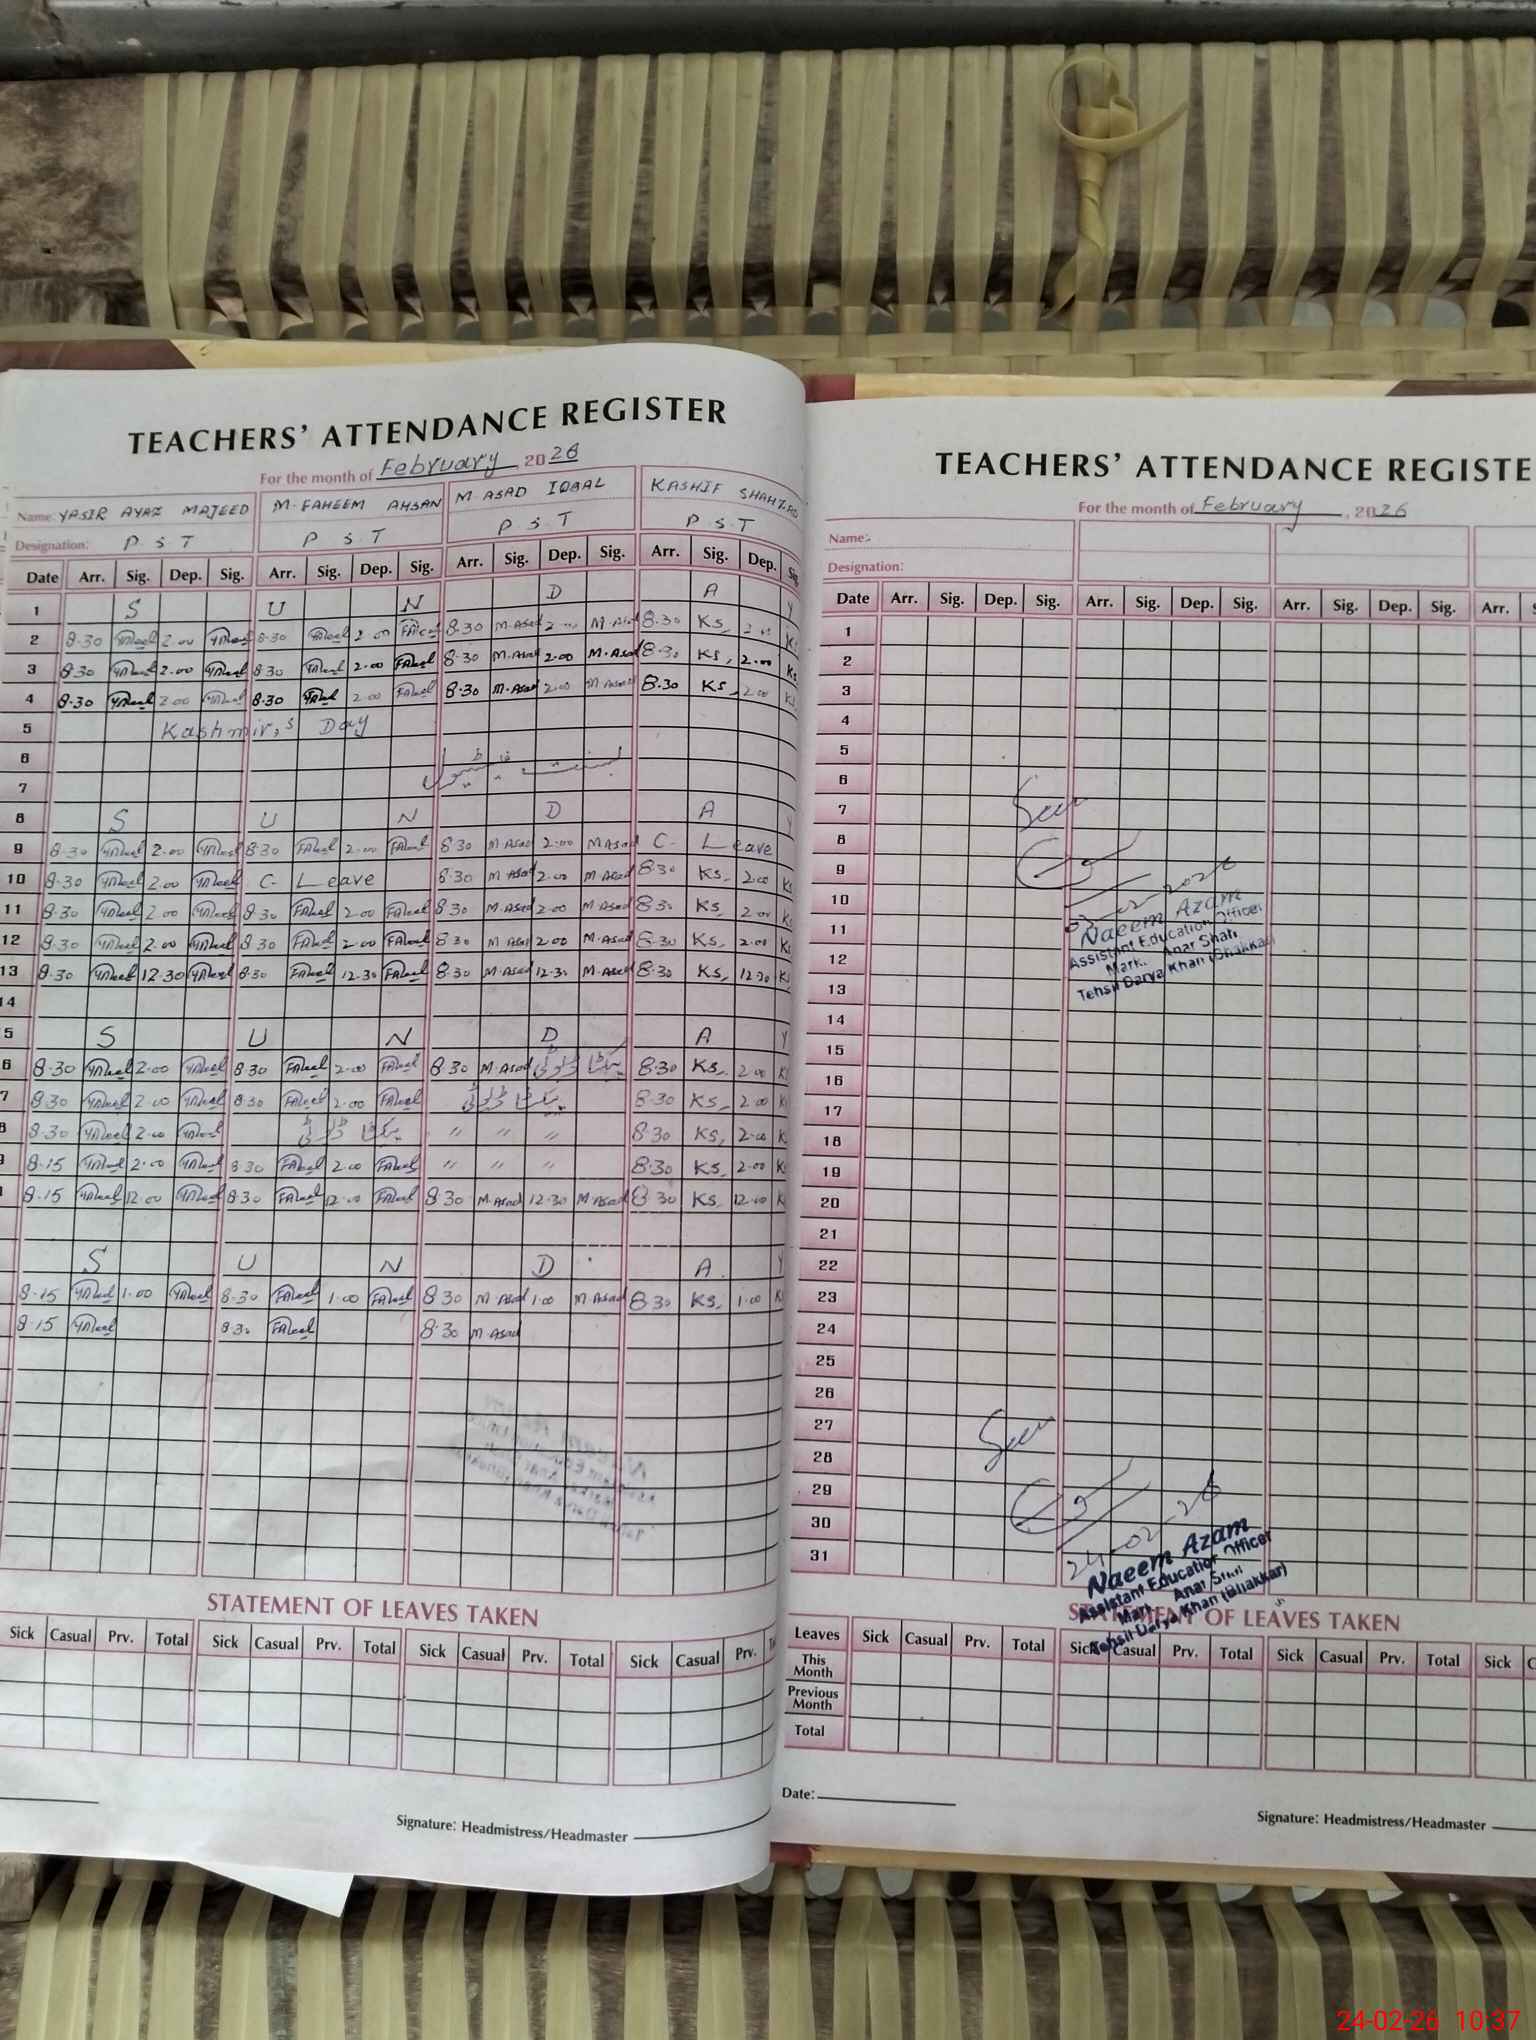 TEACHERS' ATTENDANCE REGISTER
For the month of February, 2026
Name: YASIR AYAZ MAJEED M. FAHEEM AHSAN M. ASAD IQBAL KASHIF SHAHZAD
Designation: P S T P S T P S T P S T
Date Arr. Sig. Dep. Sig. Arr. Sig. Dep. Sig. Arr. Sig. Dep. Sig. Arr. Sig. Dep. Sig
1 S U N D A Y
2 8.30 2.00 8.30 2.00 8.30 M.Asad 2.00 M.Asad 8.30 KS 2.00 KS
3 8.30 2.00 8.30 2.00 8.30 M.Asad 2.00 M.Asad 8.30 KS 2.00 KS
4 8.30 2.00 8.30 2.00 8.30 M.Asad 2.00 M.Asad 8.30 KS 2.00 KS
5 Kashmir,s Day
6 بسنت فیسٹیول
7
8 S U N D A Y
9 8.30 2.00 8.30 2.00 8.30 M Asad 2.00 M Asad C- Leave
10 8.30 2.00 C- Leave 8.30 M.Asad 2.00 M.Asad 8.30 KS 2.00 KS
11 8.30 2.00 8.30 2.00 8.30 M.Asad 2.00 M.Asad 8.30 KS 2.00 KS
12 8.30 2.00 8.30 2.00 8.30 M Asad 2.00 M.Asad 8.30 KS 2.00 K
13 8.30 12.30 8.30 12.30 8.30 M.Asad 12.30 M.Asad 8.30 KS 12.30 KS
14
5 S U N D A Y
6 8.30 2.00 8.30 2.00 8.30 M.Asad ڈیوٹی 8.30 KS 2.00 K
7 8.30 2.00 8.30 2.00 ڈیوٹی 8.30 KS 2.00 K
8 8.30 2.00 ڈیوٹی " " " 8.30 KS 2.00 K
9 8.15 2.00 8.30 2.00 " " " 8.30 KS 2.00 K
8.15 12.00 8.30 12.00 8.30 M.Asad 12.30 M.Asad 8.30 KS 12.00 K
S U N D A Y
8.15 1.00 8.30 1.00 8.30 M.Asad 1.00 M.Asad 8.30 KS 1.00 K
8.15 8.30 8.30 M Asad
STATEMENT OF LEAVES TAKEN
Sick Casual Prv. Total Sick Casual Prv. Total Sick Casual Prv. Total Sick Casual Prv.
Signature: Headmistress/Headmaster
TEACHERS' ATTENDANCE REGISTE
For the month of February, 2026
Name:-
Designation:
Date Arr. Sig. Dep. Sig. Arr. Sig. Dep. Sig. Arr. Sig. Dep. Sig. Arr. S
1
2
3
4
5
6
7
Seen
8
9
10
Naeem Azam
11
Assistant Education Officer
12
Mark. Anar Shah
Tehsil Darya Khan (Bhakkar)
13
14
15
16
17
18
19
20
21
22
23
24
25
26
27
Seen
28
29
30
24-02-26
31
Naeem Azam
Assistant Education Officer
Mark. Anar Shah
Tehsil Darya Khan (Bhakkar)
STATEMENT OF LEAVES TAKEN
Leaves Sick Casual Prv. Total Sick Casual Prv. Total Sick Casual Prv. Total Sick C
This Month
Previous Month
Total
Date:
Signature: Headmistress/Headmaster
24-02-26 10:37